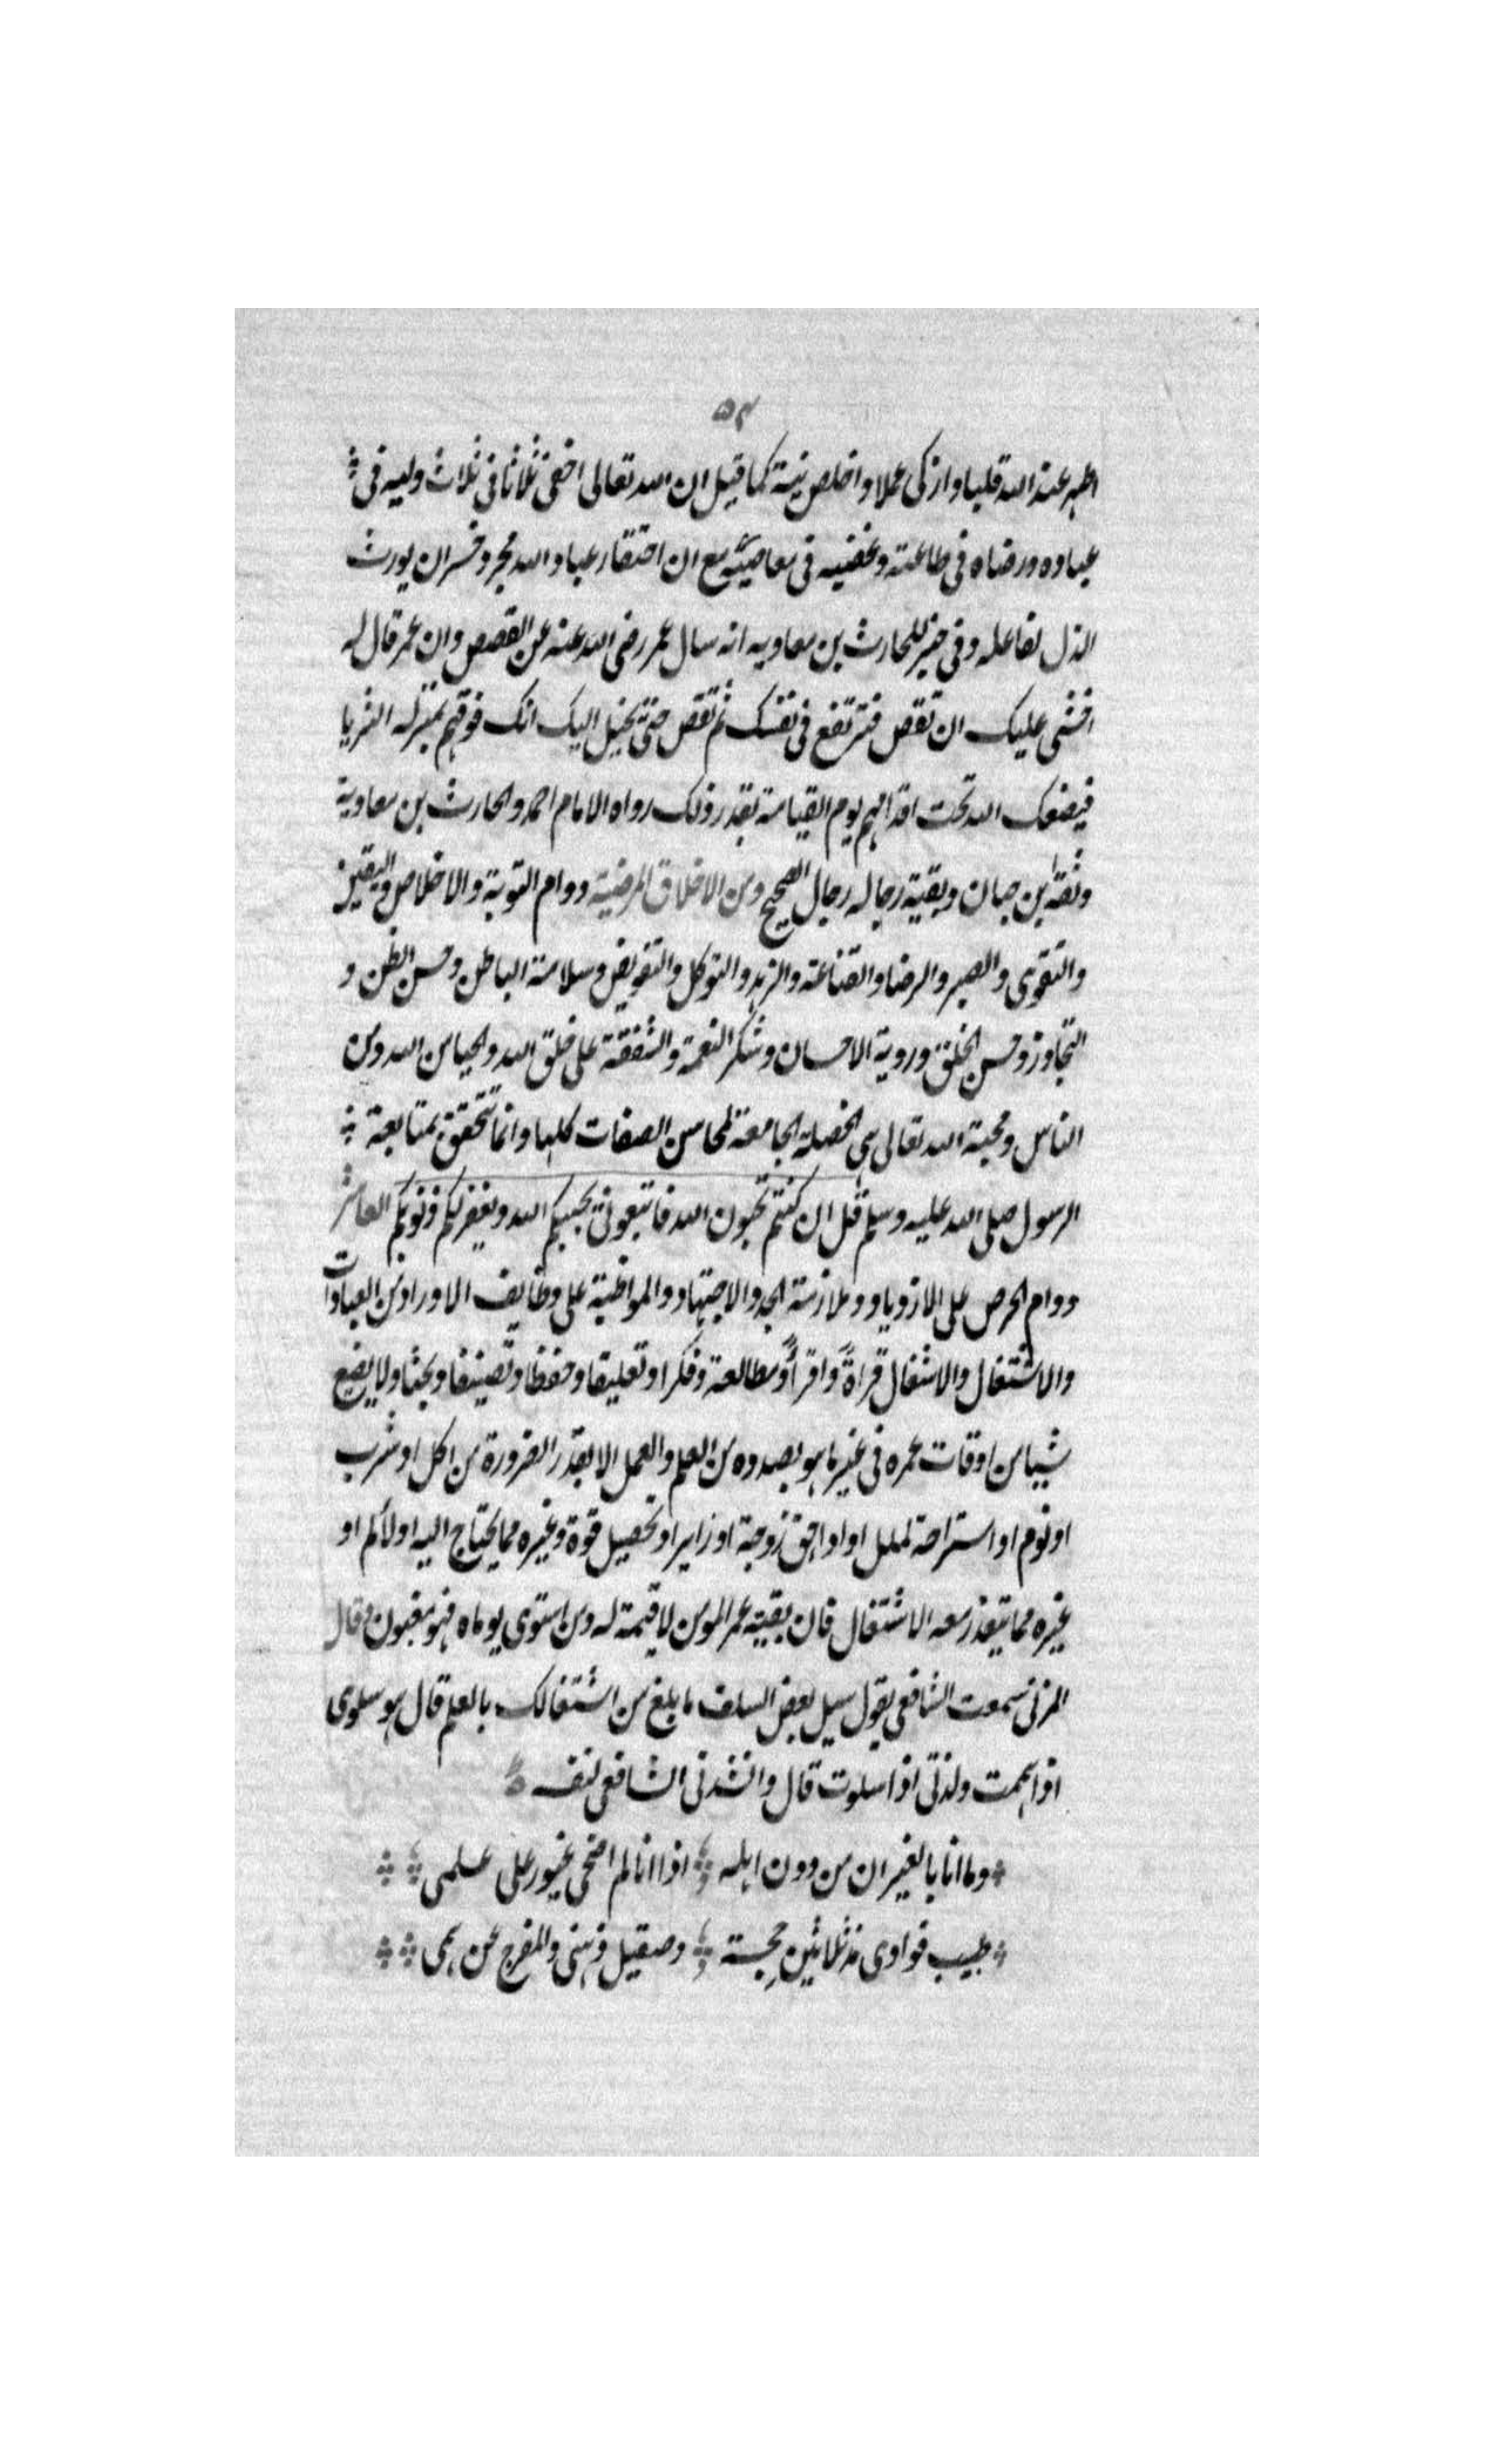 ٥٣
اطهر عند الله قلبا وازكى عملا واخلص نية كما قيل ان الله تعالى اخفى ثلاثا فى ثلاث وليه فى
عباده ورضاه فى طاعته وغضبه فى معاصيه مع ان احتقار عباد الله مجر وخسران يورث
الذل لفاعله وفى خبر للحارث بن معاويه انه سال عمر رضى الله عنه عن القصص وان عمر قال له
اخشى عليك ان تقص فترتفع فى نفسك ثم تقص حتى يخيل اليك انك فوقهم بمنزله الثريا
فيضعك الله تحت اقدامهم يوم القيامة بقدر ذلك رواه الامام احمد والحارث بن معاوية
وثقه ابن حبان وبقية رجاله رجال الصحيح ومن الاخلاق المرضية دوام التوبة والاخلاص واليقين
والتقوى والصبر والرضا والقناعة والزهد والتوكل والتفويض وسلامة الباطن وحسن الظن و
التجاوز وحسن الخلق وروية الاحسان وشكر النعمة والشفقة على خلق الله والحيا من الله ومن
الناس ومحبة الله تعالى هى الخصلة الجامعة لمحاسن الصفات كلها وانما تتحقق بمتابعة
الرسول صلى الله عليه وسلم قل ان كنتم تحبون الله فاتبعونى يحببكم الله ويغفر لكم ذنوبكم العاشر
دوام الحرص على الازدياد وملازمة الجد والاجتهاد والمواظبة على وظايف الاوراد من العبادات
والاشتغال والاشغال قراةً واقراًّ ومطالعة وفكرا وتعليقا وحفظا وتصنيفا وبحثا ولا يضيع
شيا من اوقات عمره فى غير ما هو بصدده من العلم والعمل الا بقدر الضرورة من اكل او شرب
او نوم او استراحة لملل او اداء حق زوجة او زاير او تحصيل قوة وغيره مما يحتاج اليه او لألم او
غيره مما يتعذر معه الاشتغال فان بقية عمر المومن لا قيمة له ومن استوى يوماه فهو مغبون وقال
المزنى سمعت الشافعى يقول سيل بعض السلف ما بلغ من اشتغالك بالعلم قال هو سلوى
اذا اهممت ولذتى اذا سلوت قال وانشدنى الشافعى لنفسه
وما انا بالغيران من دون اهله اذا انا لم اضحى غيور على علمى
طبيب فوادى مذ ثلاثين حجة وصيقل ذهنى والمفرج عن همى